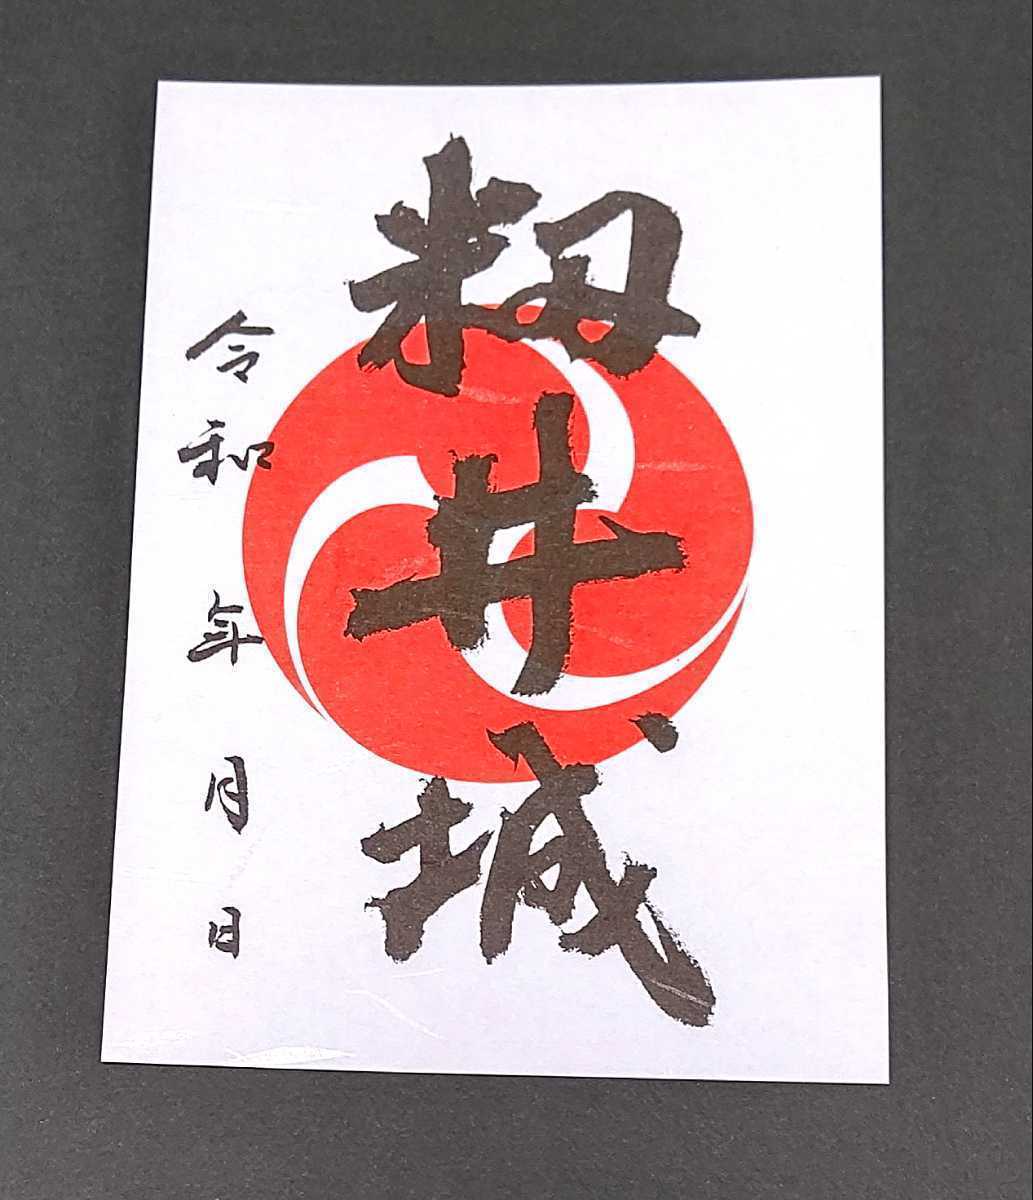 籾井城
令和 年 月 日